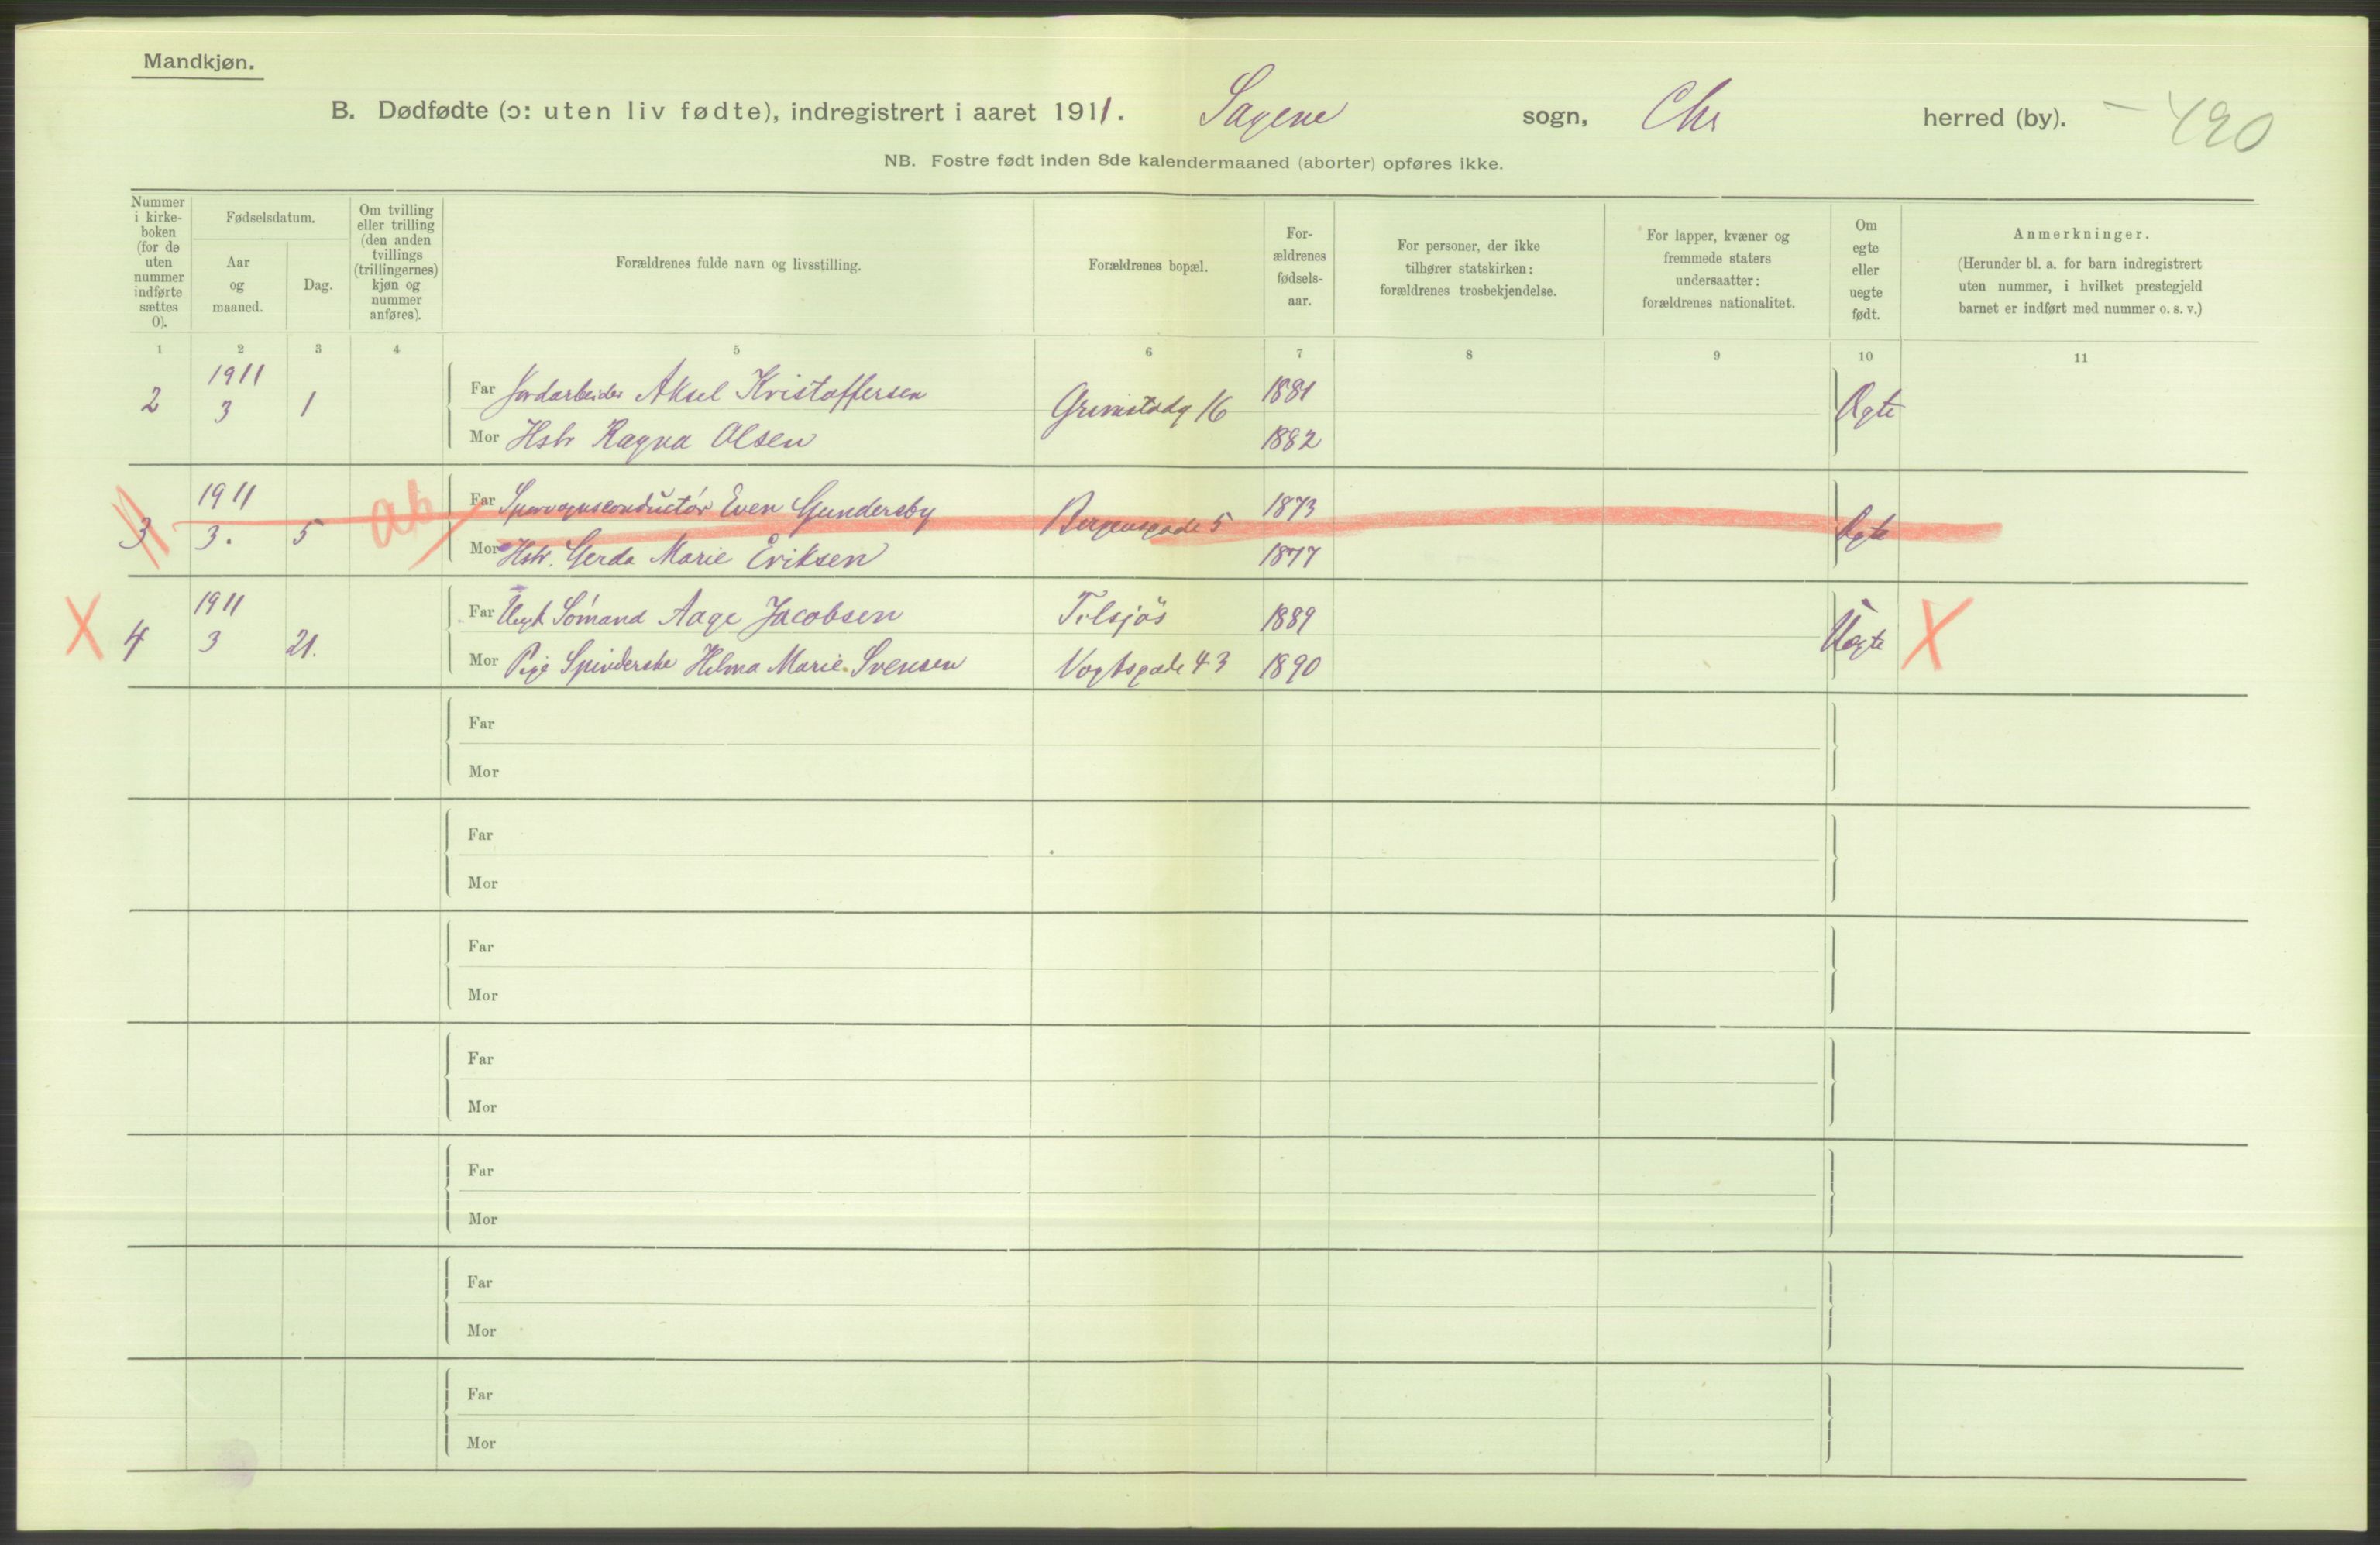 Mandkjøn.
B. Dødfødte (ɔ: uten liv fødte), indregistrert i aaret 1911. Sagene sogn, Chr herred (by). – 490
NB. Fostre født inden 8de kalendermaaned (aborter) opføres ikke.
Nummer i kirke-boken (for de uten nummer indførte sættes 0).
Fødselsdatum.
Aar og maaned.
Dag.
Om tvilling eller trilling (den anden tvillings (trillingernes) kjøn og nummer anføres).
Forældrenes fulde navn og livsstilling.
Forældrenes bopæl.
For-ældrenes fødsels-aar.
For personer, der ikke tilhører statskirken: forældrenes trosbekjendelse.
For lapper, kvæner og fremmede staters undersaatter: forældrenes nationalitet.
Om egte eller uegte født.
Anmerkninger.
(Herunder bl. a. for barn indregistrert uten nummer, i hvilket prestegjeld barnet er indført med nummer o. s. v.)
1 2 3 4 5 6 7 8 9 10 11
2 1911 3 1 Far Jordarbeider Aksel Kristoffersen Grimstadg 16 1881 Ægte
Mor Hstr Ragna Olsen 1882
3 1911 3. 5 ab Far Sporvognsconductør Even Gundersby Bergensgade 5 1873 Ægte
Mor Hstr. Gerda Marie Eriksen 1877
X 4 1911 3 21. Far Ungk Sömand Aage Jacobsen Tilsjös 1889 Uægte X
Mor Pige Spinderske Hilma Marie Svensen Vogtsgade 43 1890
Far
Mor
Far
Mor
Far
Mor
Far
Mor
Far
Mor
Far
Mor
Far
Mor